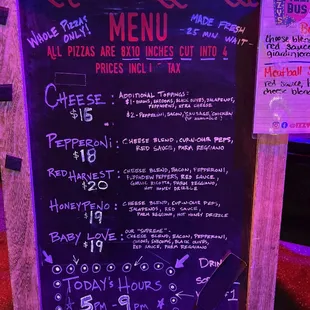 WHOLE PIZZAS ONLY!
MENU
MADE FRESH
25 MIN WAIT
ALL PIZZAS ARE 8X10 INCHES CUT INTO 4
PRICES INCL TAX
CHEESE : ADDITIONAL TOPPINGS:
$15
$1-ONIONS, SHROOMS, BLACK OLIVES, JALAPENOS,
PEPPERONCINI, XTRA CHEESE
$2-PEPPERONI, BACON, SAUSAGE, CHICKEN
(IF AVAILABLE)
PEPPERONI : CHEESE BLEND, CUP-N-CHAR PEPS,
$18
RED SAUCE, PARM REGGIANO
RED HARVEST : CHEESE BLEND, BACON, PEPPERONI,
$20
RED SAUCE,
GARLIC RICOTTA, PARM REGGIANO
HONEYPENO : CHEESE BLEND, CUP-N-CHAR PEPS,
$19
JALAPENOS, RED SAUCE,
PARM REGGIANO, HOT HONEY DRIZZLE
BABY LOVE : OUR "SUPREME".
$19
CHEESE BLEND, BACON, PEPPERONI,
ONIONS, SHROOMS, BLACK OLIVES,
RED SAUCE, PARM REGGIANO
TODAY'S HOURS
5PM - 9PM
DRIN
$1
BUS
Cheese blen
red sauce
giardinier
Meatball
red sauce,